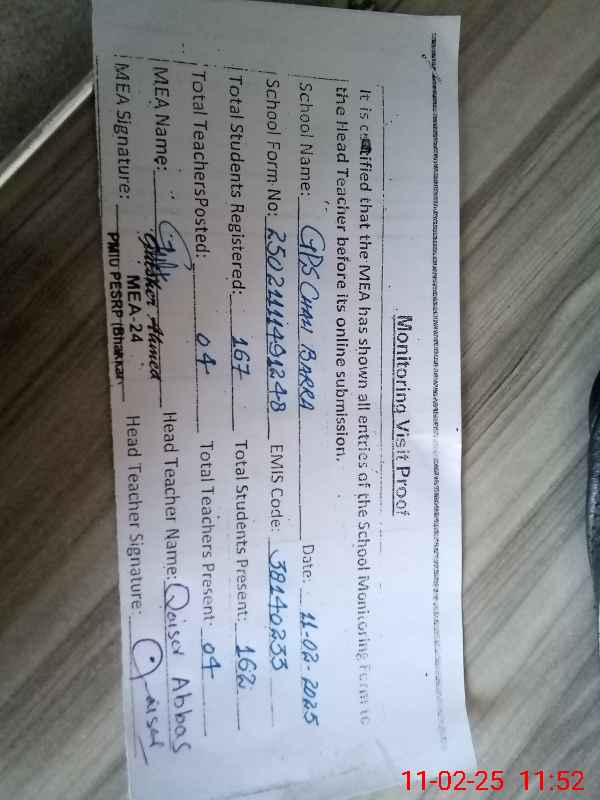 Monitoring Visit Proof
It is certified that the MEA has shown all entries of the School Monitoring Form to
the Head Teacher before its online submission.
School Name: GPS CHAH BARRA Date: 11-02-2025
School Form No: 2502111491248 EMIS Code: 38140233
Total Students Registered: 167 Total Students Present: 162
Total Teachers Posted: 04 Total Teachers Present: 04
MEA Name: Gulsher Ahmed Head Teacher Name: Qaiser Abbas
MEA Signature: Head Teacher Signature: Qaiser
MEA-24
PMIU PESRP (Bhakkar)
11-02-25 11:52